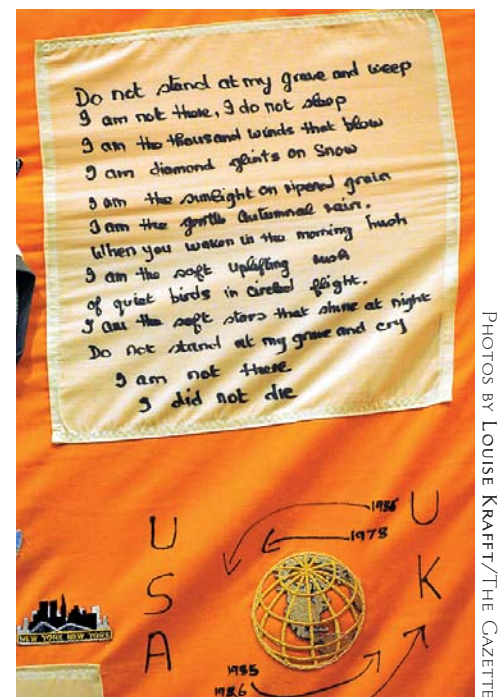 Do not stand at my grave and weep
I am not there, I do not sleep
I am the thousand winds that blow
I am diamond glints on Snow
I am the sunlight on ripened grain
I am the gentle Autumnal rain.
When you waken in the morning hush
I am the soft uplifting rush
of quiet birds in circled flight.
I am the soft stars that shine at night
Do not stand at my grave and cry
I am not there
I did not die
PHOTOS BY LOUISE KRAFFT/THE GAZETTE
1986
1978
U
K
U
S
A
NEW YORK NEW YORK
1985
1986